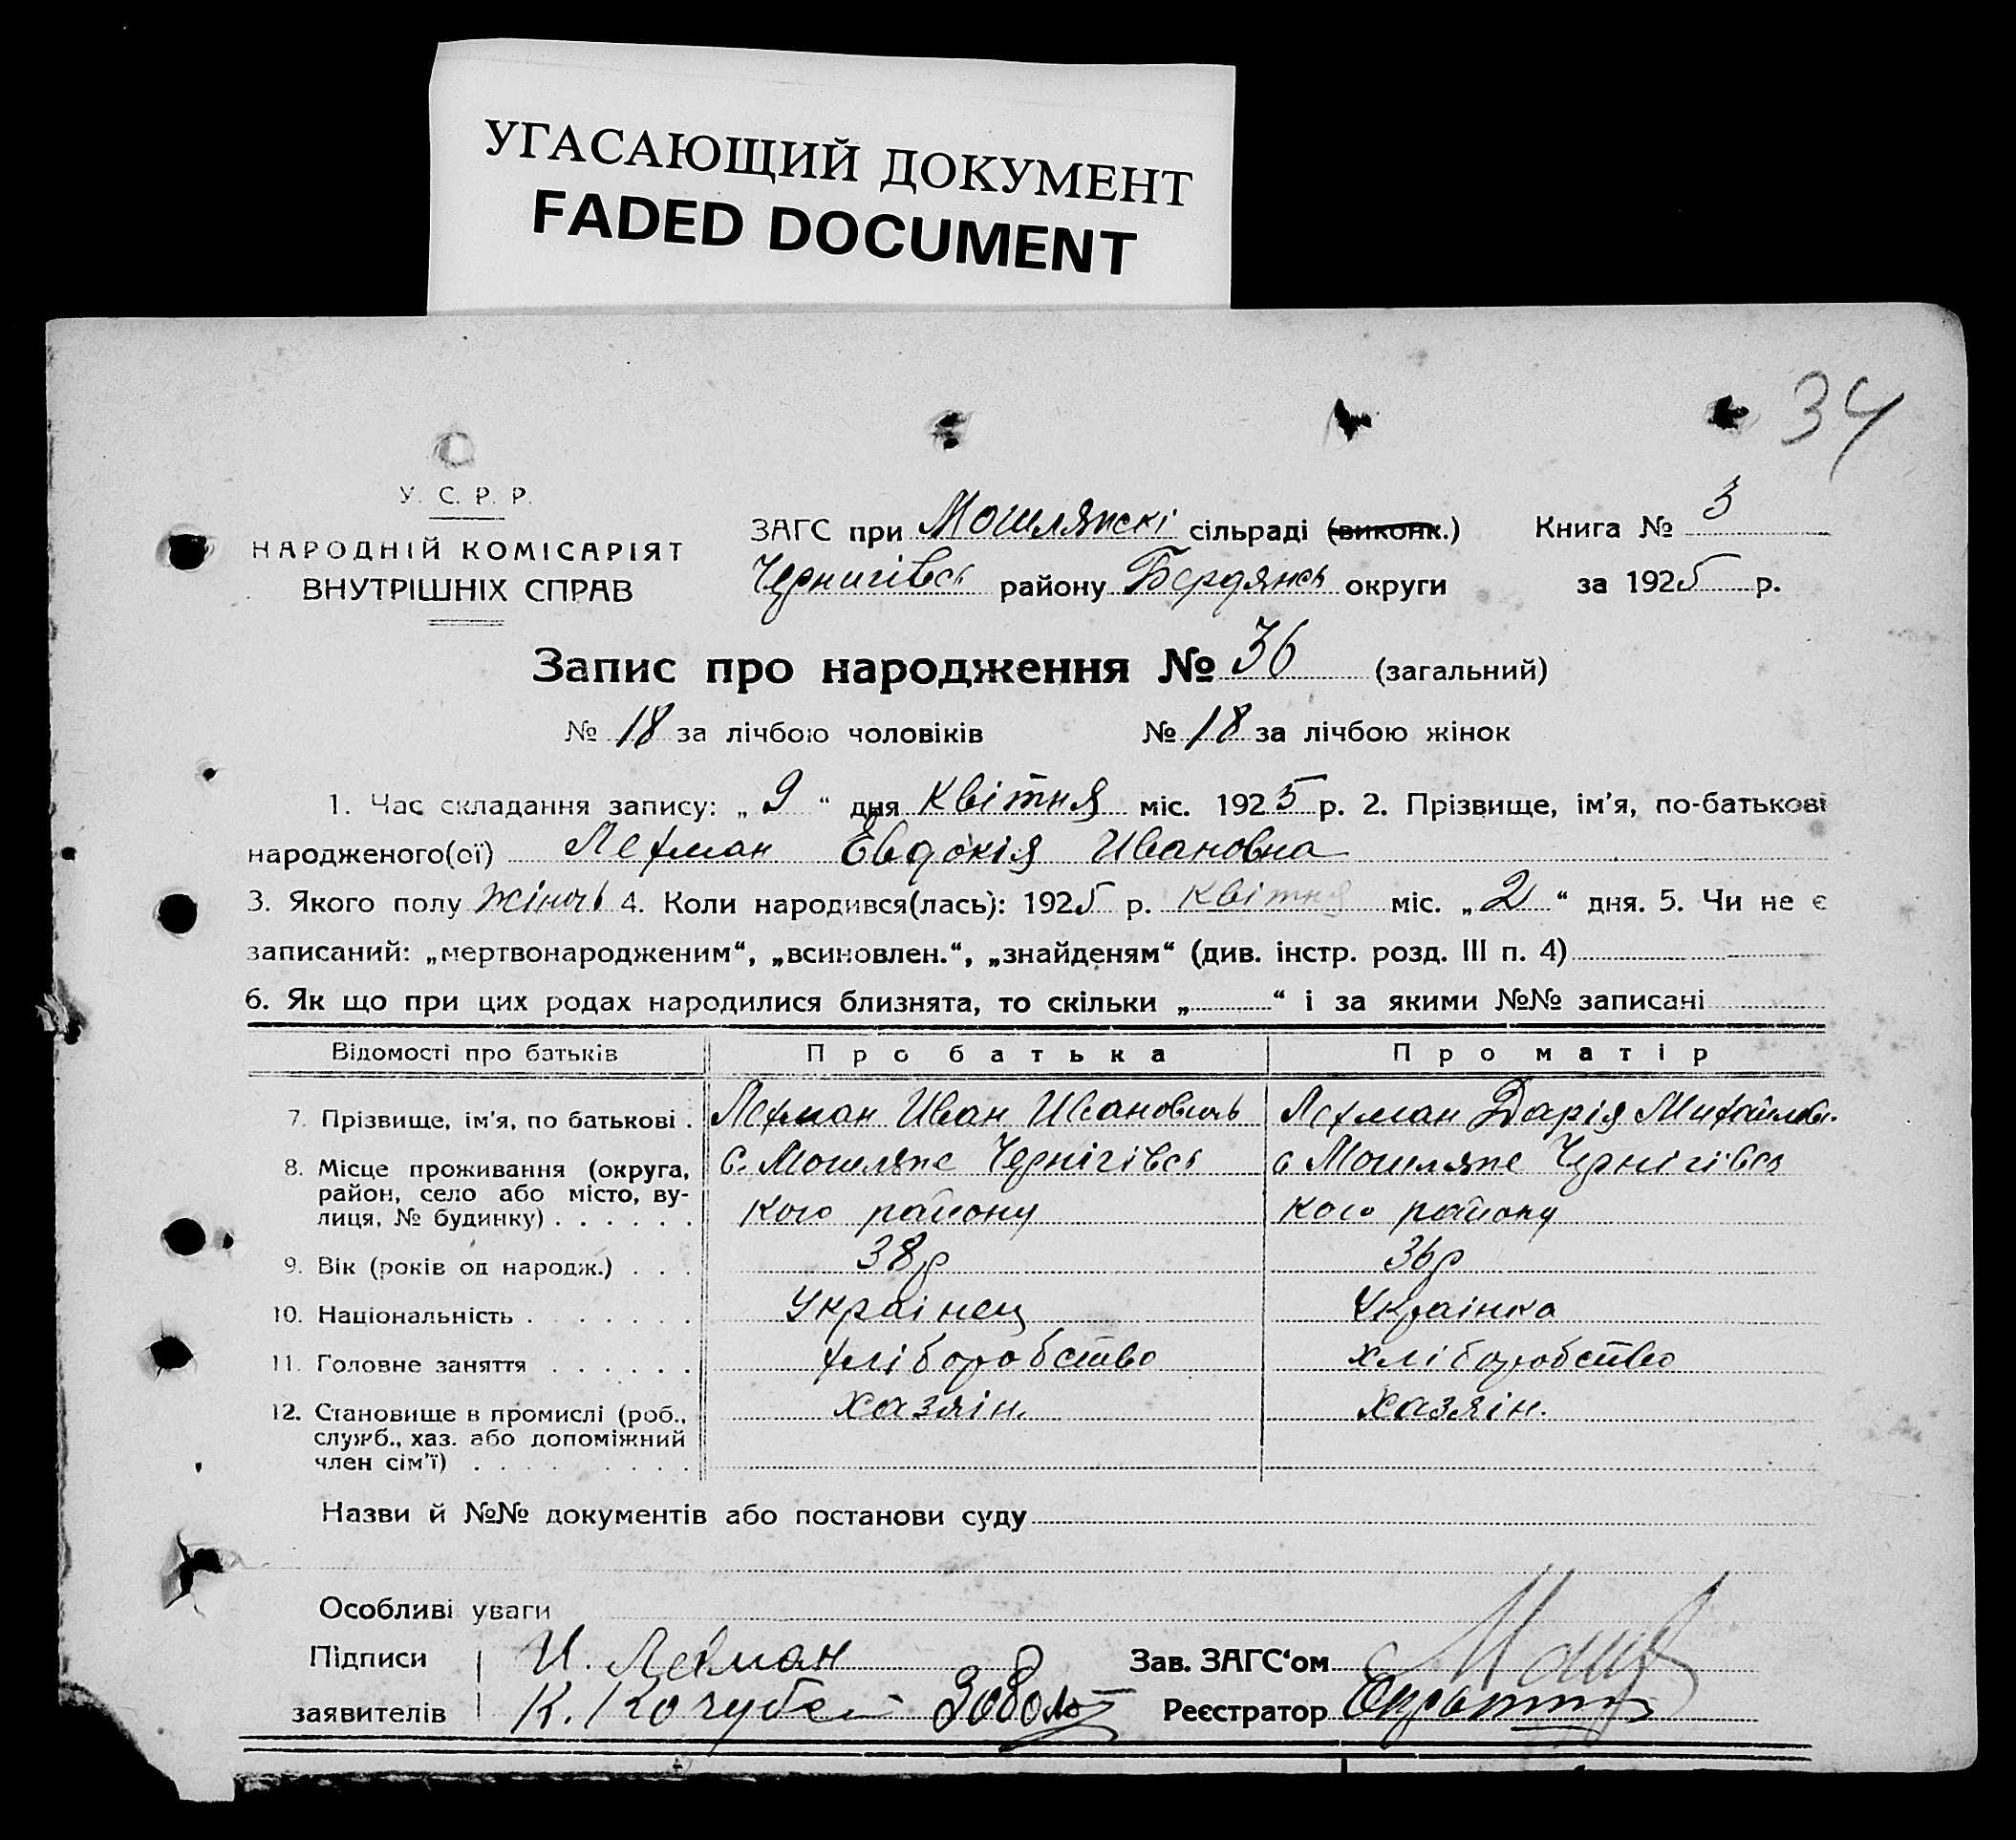 УГАСАЮЩИЙ ДОКУМЕНТ
FADED DOCUMENT
34
У. С. Р. Р.
НАРОДНІЙ КОМІСАРІЯТ
ВНУТРІШНІХ СПРАВ
ЗАГС при сільраді (виконк.) Книга № 3
Чернигівсь району Бердянсь округи за 1925 р.
Запис про народження № 36 (загальний)
№ 18 за лічбою чоловіків № 18 за лічбою жінок
1. Час складання запису: „ 9 “ дня Квітня міс. 1925 р. 2. Прізвище, ім’я, по-батькові
народженого(ої) Лехман Евдокія Ивановна
3. Якого полу жіночь 4. Коли народився(лась): 1925 р. Квітня міс. „ 2 “ дня. 5. Чи не є
записаний: „мертвонародженим“, „всиновлен.“, „знайденям“ (див. інстр. розд. III п. 4)
6. Як що при цих родах народилися близнята, то скільки „ “ і за якими №№ записані
Відомості про батьків Про батька Про матір
7. Прізвище, ім’я, по батькові . Лехман Иван Ивановичь Лехман Дарія Михайлов.
8. Місце проживання (округа, район, село або місто, вулиця, № будинку) . . . . . . с. Чернігівсь кого району с Чернігівсь кого району
9. Вік (років од народж.) . . . 38 р 36 р
10. Національність . . . . . . . Украінец Украінка
11. Головне заняття . . . . . . хліборобство хліборобство
12. Становище в промислі (роб., служб., хаз. або допоміжний член сім’ї) . . . . . . . . . хазяін. хазяін.
Назви й №№ документів або постанови суду
Особливі уваги
Підписи И. Лехман Зав. ЗАГС‘ом
заявителів К. Кочубей Реєстратор